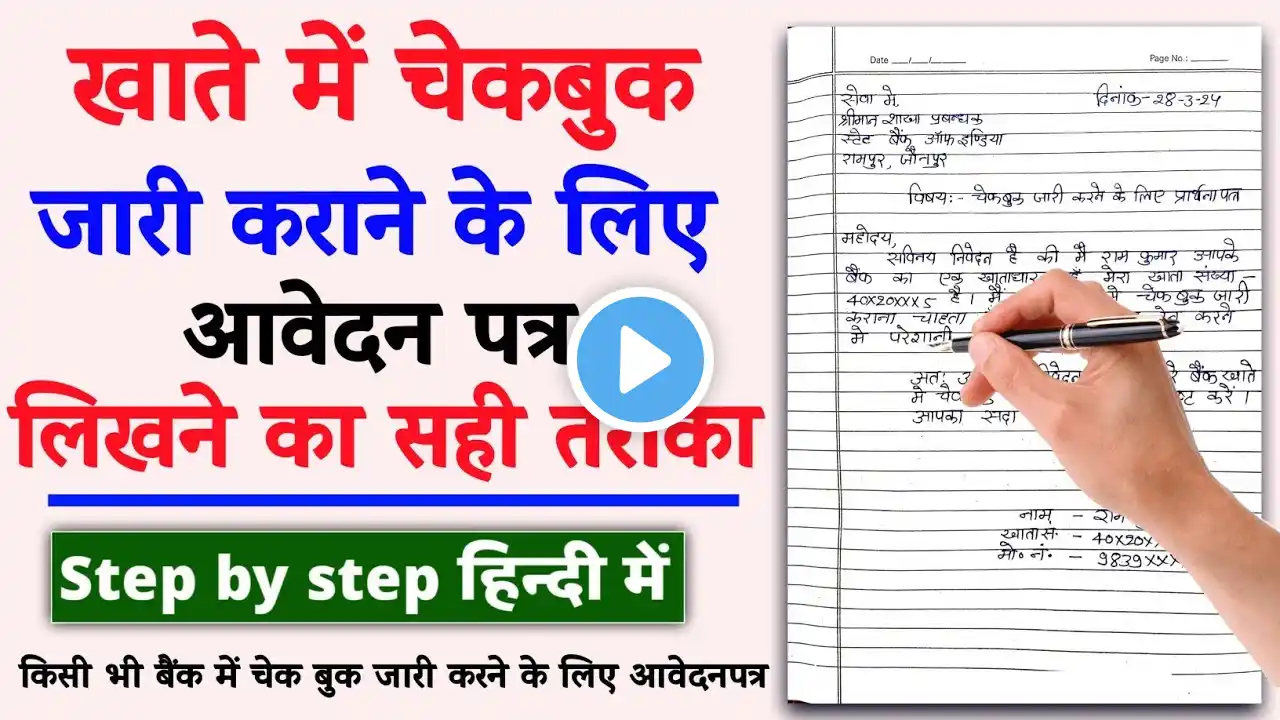 खाते में चेकबुक
जारी कराने के लिए
आवेदन पत्र
लिखने का सही तरीका
Step by step हिन्दी में
किसी भी बैंक में चेक बुक जारी करने के लिए आवेदनपत्र
Date ___/___/____ Page No.: ______
सेवा मे, दिनांक-28-3-24
श्रीमान शाखा प्रबन्धक
स्टेट बैंक ऑफ इण्डिया
रामपुर, जौनपुर
विषय:- चेकबुक जारी करने के लिए प्रार्थना पत्र
महोदय,
सविनय निवेदन है की मै राम कुमार आपके
बैंक का एक खाताधारक मेरा खाता संख्या -
40X20XXX5 है। मैं चेक बुक जारी
कराना चाहता करने
मे परेशानी
अतः बैंक खाते
मे करें।
आपका सदा
नाम -
खाता सं. - 40X20X
मो॰ नं॰ - 9839XXX